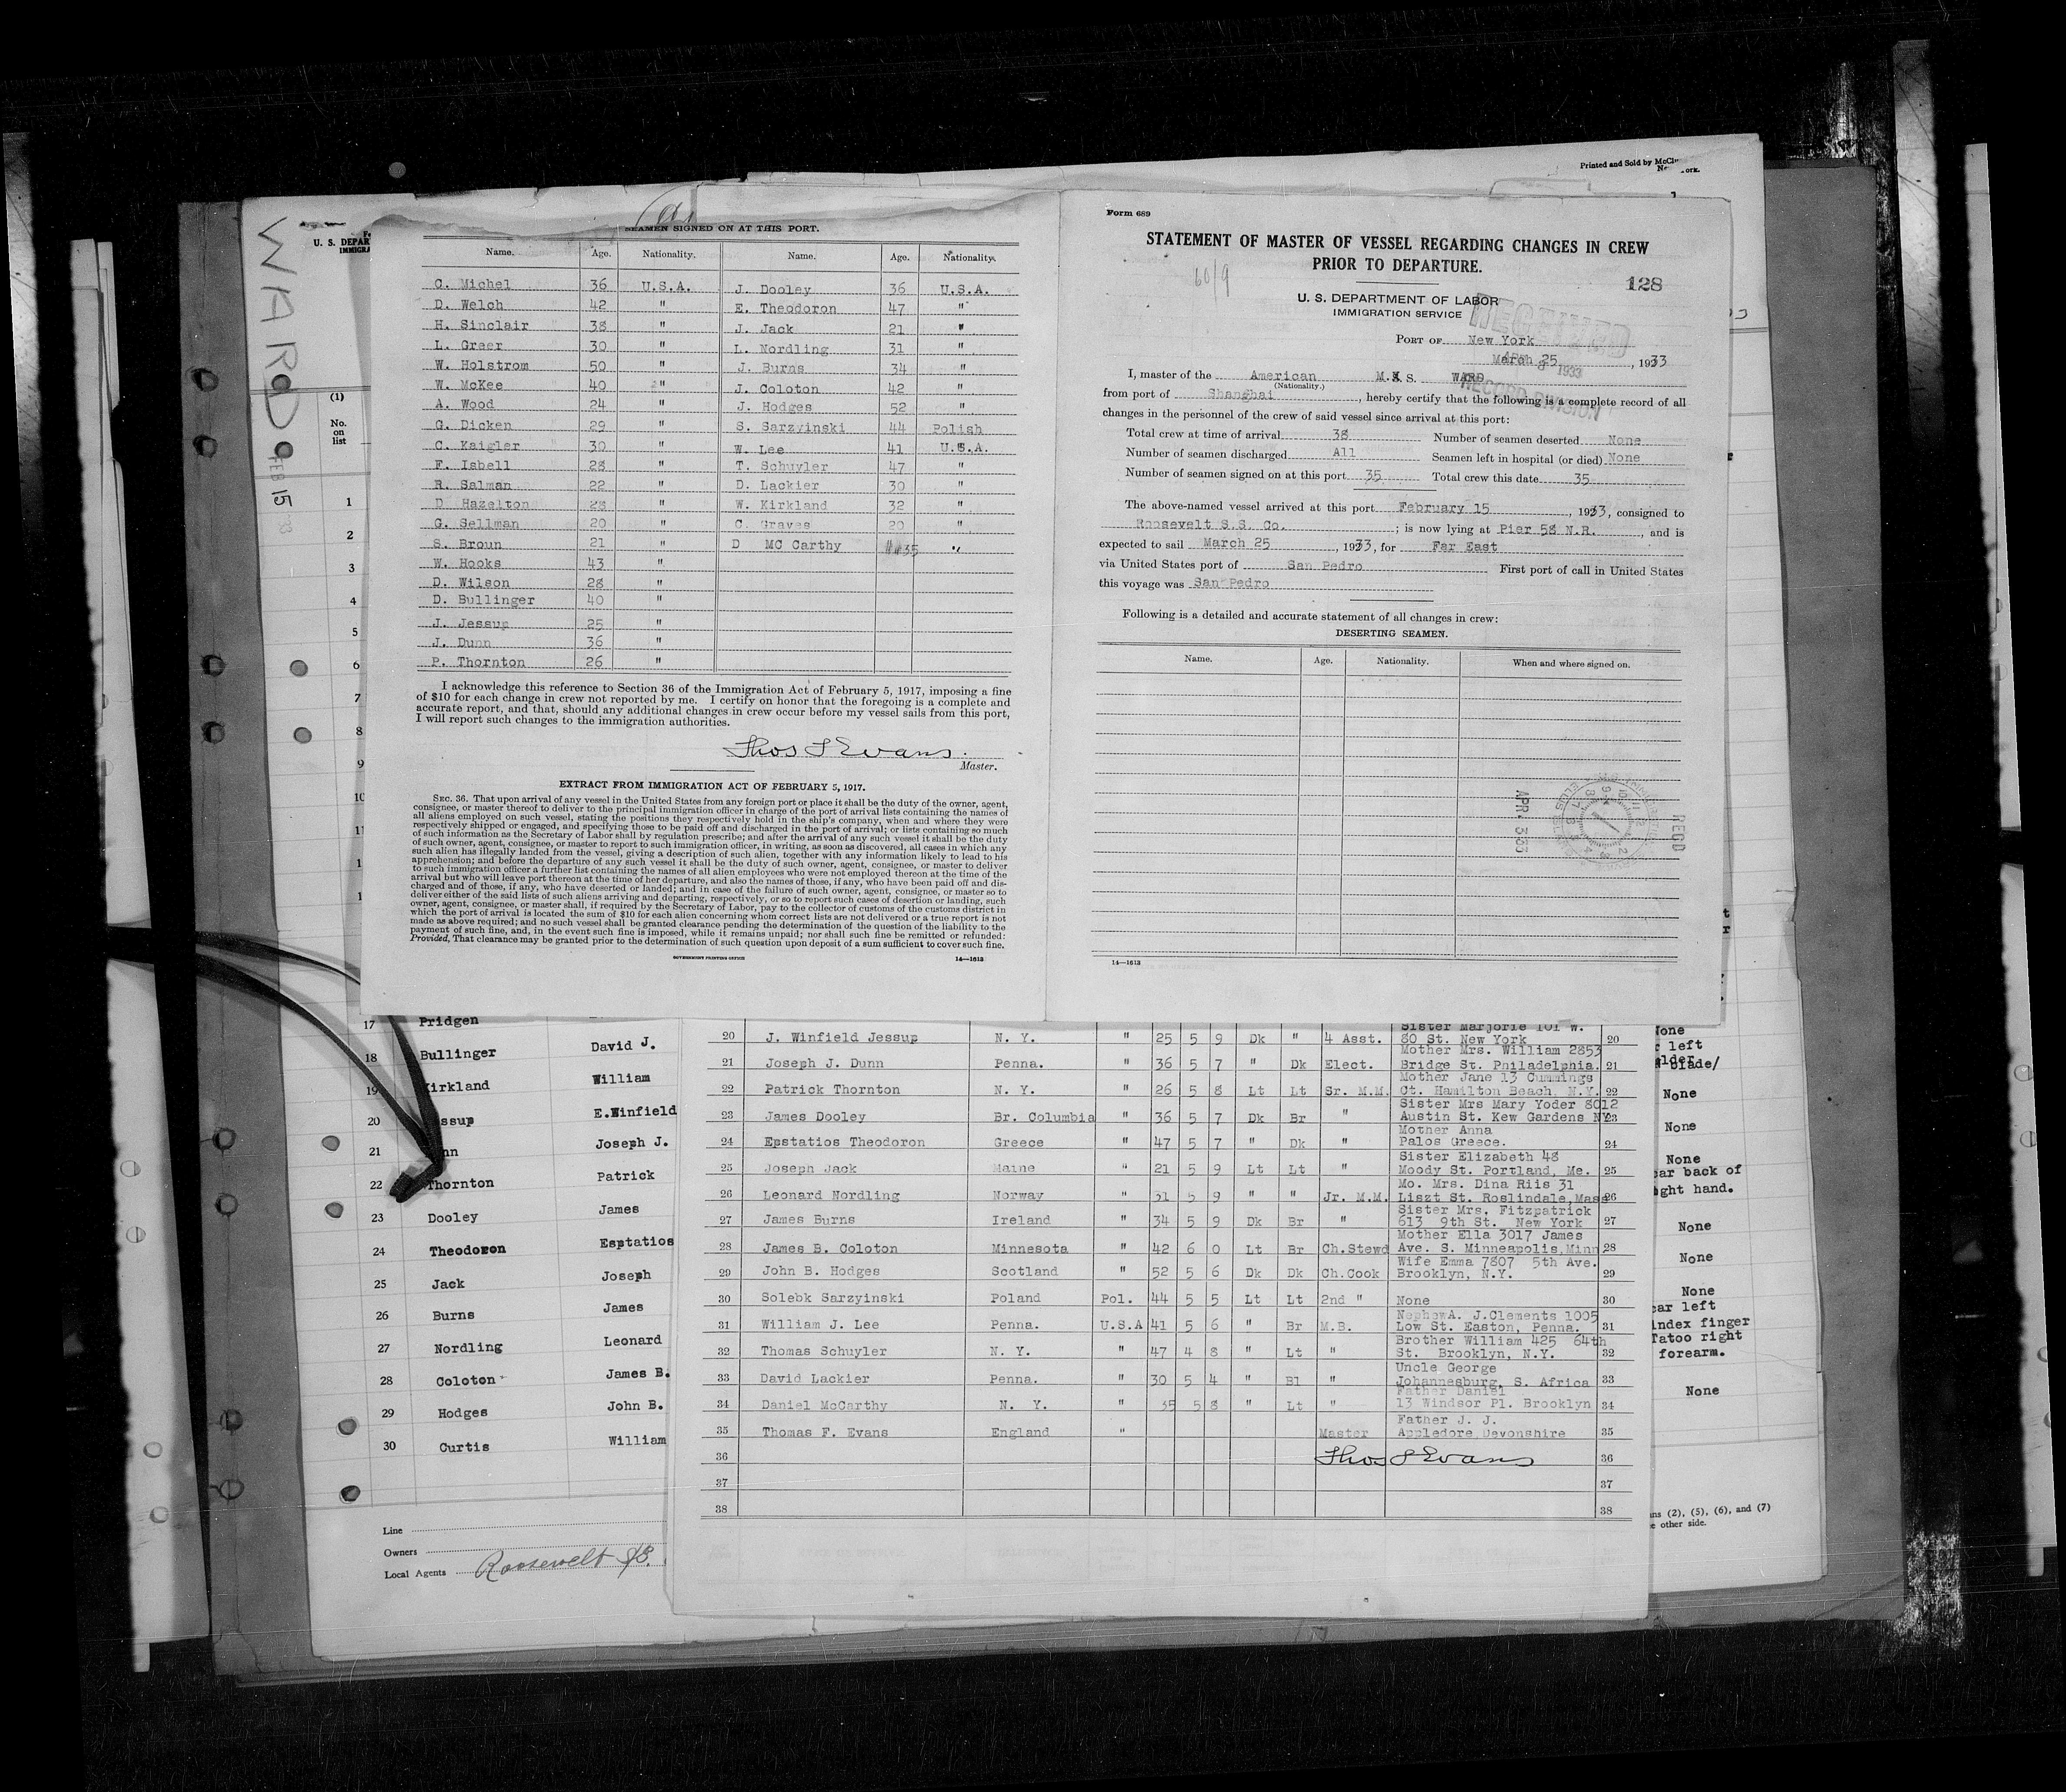 Printed and Sold by
WARD
FEB 15
U. S. DEPAR
IMMIGRA
(1)
No.
on
list
1
2
3
4
5
6
7
8
9
10
11
SEAMEN SIGNED ON AT THIS PORT.
Name. Age. Nationality. Name. Age. Nationality.
C. Michel 36 U.S.A. J. Dooley 36 U.S.A.
D. Welch 42 " E. Theodoron 47 "
H. Sinclair 38 " J. Jack 21 "
L. Greer 30 " L. Nordling 31 "
W. Holstrom 50 " J. Burns 34 "
W. McKee 40 " J. Coloton 42 "
A. Wood 24 " J. Hodges 52 "
G. Dicken 29 " S. Sarzyinski 44 Polish
C. Kaigler 30 " W. Lee 41 U.S.A.
F. Isbell 28 " T. Schuyler 47 "
R. Salman 22 " D. Lackier 30 "
D. Hazelton 28 " W. Kirkland 32 "
G. Sellman 20 " C. Graves 20 "
S. Broun 21 " D MC Carthy 35 "
W. Hooks 43 "
D. Wilson 28 "
D. Bullinger 40 "
J. Jessup 25 "
J. Dunn 36 "
P. Thornton 26 "
I acknowledge this reference to Section 36 of the Immigration Act of February 5, 1917, imposing a fine
of $10 for each change in crew not reported by me. I certify on honor that the foregoing is a complete and
accurate report, and that, should any additional changes in crew occur before my vessel sails from this port,
I will report such changes to the immigration authorities.
Thos F Evans
Master.
EXTRACT FROM IMMIGRATION ACT OF FEBRUARY 5, 1917.
SEC. 36. That upon arrival of any vessel in the United States from any foreign port or place it shall be the duty of the owner, agent,
consignee, or master thereof to deliver to the principal immigration officer in charge of the port of arrival lists containing the names of
all aliens employed on such vessel, stating the positions they respectively hold in the ship's company, when and where they were
respectively shipped or engaged, and specifying those to be paid off and discharged in the port of arrival; or lists containing so much
of such information as the Secretary of Labor shall by regulation prescribe; and after the arrival of any such vessel it shall be the duty
of such owner, agent, consignee, or master to report to such immigration officer, in writing, as soon as discovered, all cases in which any
such alien has illegally landed from the vessel, giving a description of such alien, together with any information likely to lead to his
apprehension; and before the departure of any such vessel it shall be the duty of such owner, agent, consignee, or master to deliver
to such immigration officer a further list containing the names of all alien employees who were not employed thereon at the time of the
arrival but who will leave port thereon at the time of her departure, and also the names of those, if any, who have been paid off and dis-
charged and of those, if any, who have deserted or landed; and in case of the failure of such owner, agent, consignee, or master so to
deliver either of the said lists of such aliens arriving and departing, respectively, or so to report such cases of desertion or landing, such
owner, agent, consignee, or master shall, if required by the Secretary of Labor, pay to the collector of customs of the customs district in
which the port of arrival is located the sum of $10 for each alien concerning whom correct lists are not delivered or a true report is not
made as above required; and no such vessel shall be granted clearance pending the determination of the question of the liability to the
payment of such fine, and, in the event such fine is imposed, while it remains unpaid; nor shall such fine be remitted or refunded:
Provided, That clearance may be granted prior to the determination of such question upon deposit of a sum sufficient to cover such fine.
GOVERNMENT PRINTING OFFICE 14—1613
Form 689
STATEMENT OF MASTER OF VESSEL REGARDING CHANGES IN CREW
PRIOR TO DEPARTURE.
60/9
128
U. S. DEPARTMENT OF LABOR
IMMIGRATION SERVICE
RECEIVED
APR 8 1933
RECORD DIVISION
PORT OF New York
March 25, 1933
I, master of the American M.S. WARD
(Nationality.)
from port of Shanghai, hereby certify that the following is a complete record of all
changes in the personnel of the crew of said vessel since arrival at this port:
Total crew at time of arrival 38 Number of seamen deserted None
Number of seamen discharged All Seamen left in hospital (or died) None
Number of seamen signed on at this port 35 Total crew this date 35
The above-named vessel arrived at this port February 15, 1933, consigned to
Roosevelt S.S. Co.; is now lying at Pier 58 N.R., and is
expected to sail March 25, 1933, for Far East
via United States port of San Pedro First port of call in United States
this voyage was San Pedro
Following is a detailed and accurate statement of all changes in crew:
DESERTING SEAMEN.
Name. Age. Nationality. When and where signed on.
REC'D
APR. 3 33
14—1613
17 Pridgen
18 Bullinger David J.
19 Kirkland William
20 ssup E.Winfield
21 nn Joseph J.
22 Thornton Patrick
23 Dooley James
24 Theodoron Esptatios
25 Jack Joseph
26 Burns James
27 Nordling Leonard
28 Coloton James B.
29 Hodges John B.
30 Curtis William
Line
Owners
Local Agents Roosevelt SS.
Sister Marjorie 101 W.
20 J. Winfield Jessup N. Y. " 25 5 9 Dk " 4 Asst. 80 St. New York 20
Mother Mrs. William 2853
21 Joseph J. Dunn Penna. " 36 5 7 " Dk Elect. Bridge St. Philadelphia. 21
Mother Jane 13 Cummings
22 Patrick Thornton N. Y. " 26 5 8 Lt Lt Sr. M.M. Ct. Hamilton Beach, N.Y. 22
Sister Mrs Mary Yoder 8012
23 James Dooley Br. Columbia " 36 5 7 Dk Br " Austin St. Kew Gardens NY 23
Mother Anna
24 Epstatios Theodoron Greece " 47 5 7 " Dk " Palos Greece. 24
Sister Elizabeth 48
25 Joseph Jack Maine " 21 5 9 Lt Lt " Moody St. Portland, Me. 25
Mo. Mrs. Dina Riis 31
26 Leonard Nordling Norway " 31 5 9 " " Jr. M.M. Liszt St. Roslindale,Mass 26
Sister Mrs. Fitzpatrick
27 James Burns Ireland " 34 5 9 Dk Br " 613 9th St. New York 27
Mother Ella 3017 James
28 James B. Coloton Minnesota " 42 6 0 Lt Br Ch.Stewd Ave. S. Minneapolis,Minn 28
Wife Emma 7807 5th Ave.
29 John B. Hodges Scotland " 52 5 6 Dk Dk Ch.Cook Brooklyn, N.Y. 29
30 Solebk Sarzyinski Poland Pol. 44 5 5 Lt Lt 2nd " None 30
NephewA. J.Clements 1005
31 William J. Lee Penna. U.S.A 41 5 6 " Br M.B. Low St. Easton, Penna. 31
Brother William 425 64th
32 Thomas Schuyler N. Y. " 47 4 8 " Lt " St. Brooklyn, N.Y. 32
Uncle George
33 David Lackier Penna. " 30 5 4 " Bl " Johannesburg, S. Africa 33
Father Daniel
34 Daniel McCarthy N. Y. " 35 5 8 " Lt " 13 Windsor Pl. Brooklyn 34
Father J. J.
35 Thomas F. Evans England " Master Appledore Devonshire 35
36 Thos F Evans 36
37 37
38 38
None
r left
lder
blade/
None
None
None
ar back of
ght hand.
None
None
None
ar left
index finger
Tatoo right
forearm.
None
ns (2), (5), (6), and (7)
e other side.